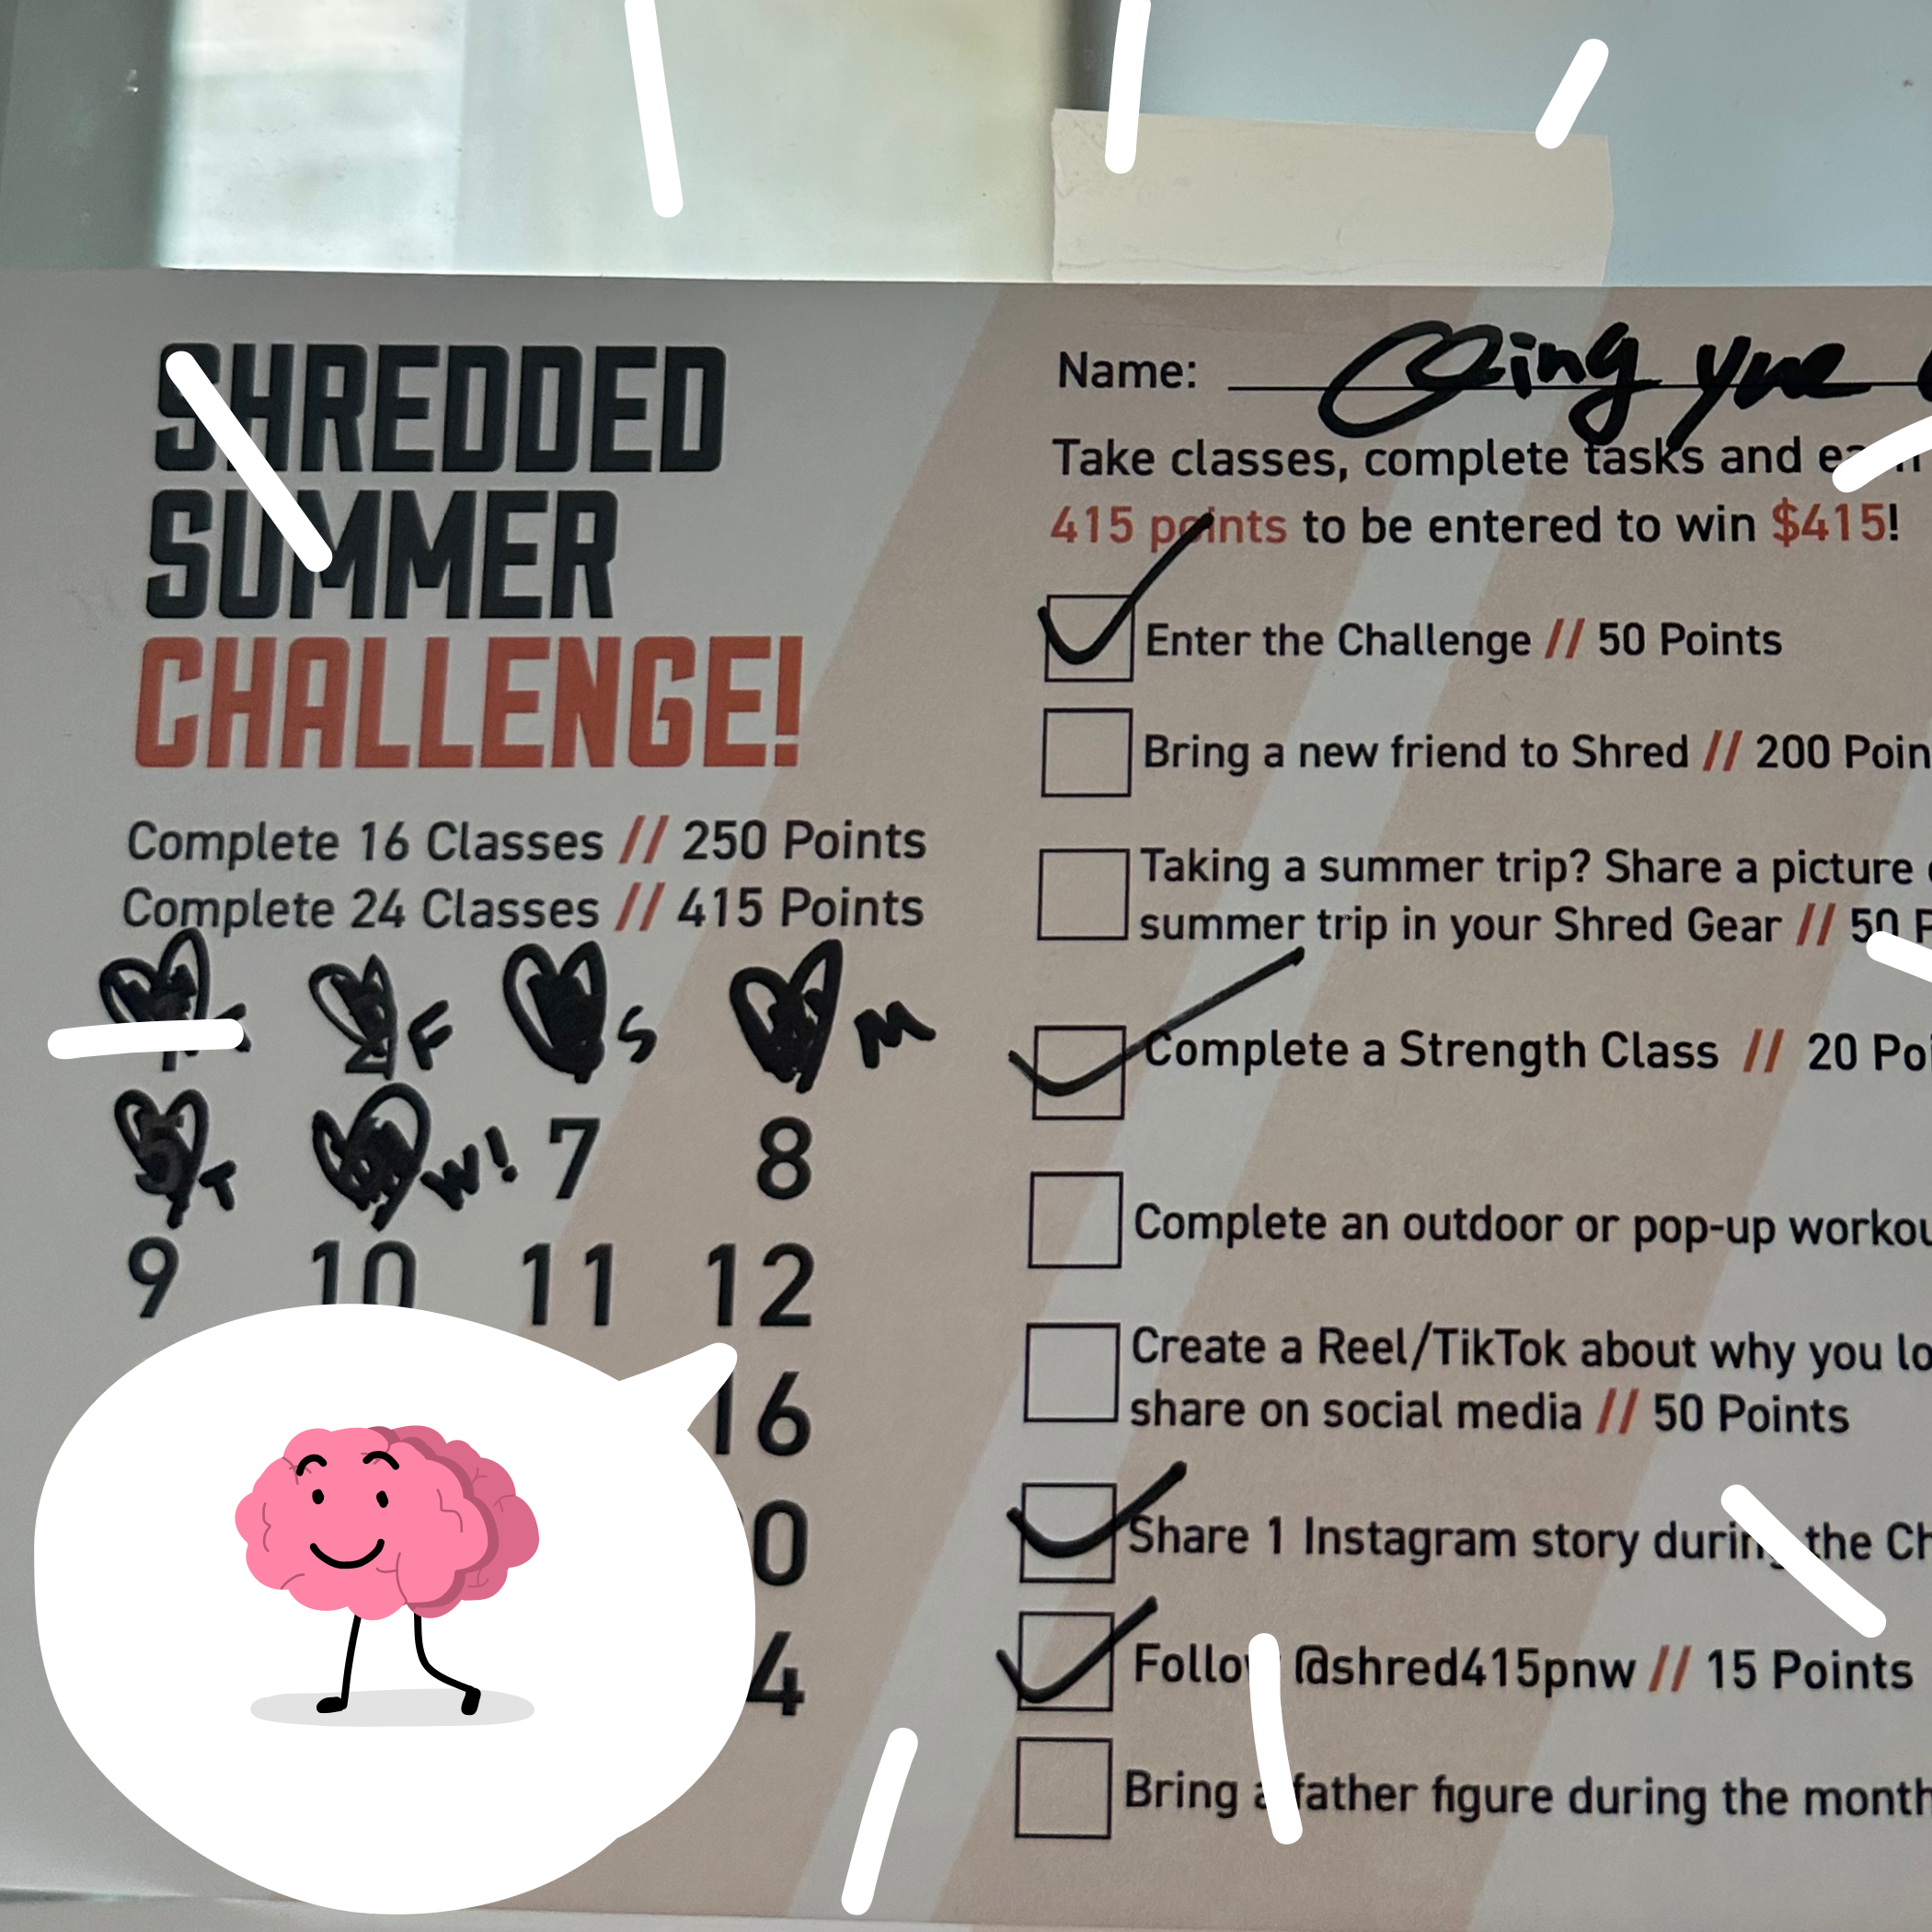 SHREDDED
SUMMER
CHALLENGE!
Complete 16 Classes // 250 Points
Complete 24 Classes // 415 Points
F S M
5 T W! 7 8
9 10 11 12
16
0
4
Name: Qing yue
Take classes, complete tasks and
415 points to be entered to win $415!
Enter the Challenge // 50 Points
Bring a new friend to Shred // 200 Poin
Taking a summer trip? Share a picture
summer trip in your Shred Gear // 50 P
Complete a Strength Class // 20 Poi
Complete an outdoor or pop-up workou
Create a Reel/TikTok about why you lo
share on social media // 50 Points
Share 1 Instagram story during the Ch
Follow @shred415pnw // 15 Points
Bring a father figure during the month